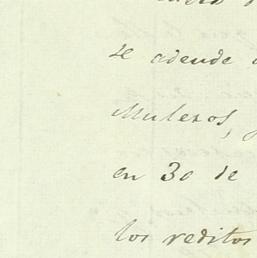 se adeude
Mulexos,
en 30 de
los reditos